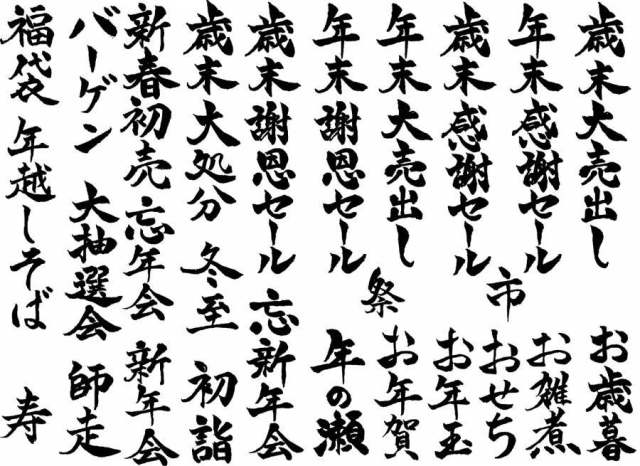 歳末大売出し
お歳暮
年末感謝セール
市
お雑煮
歳末感謝セール
おせち
年末大売出し
お年玉
祭
お年賀
年末謝恩セール
年の瀬
歳末謝恩セール
忘新年会
歳末大処分
冬至
初詣
新春初売
忘年会
新年会
バーゲン
大抽選会
師走
福袋
年越しそば
寿